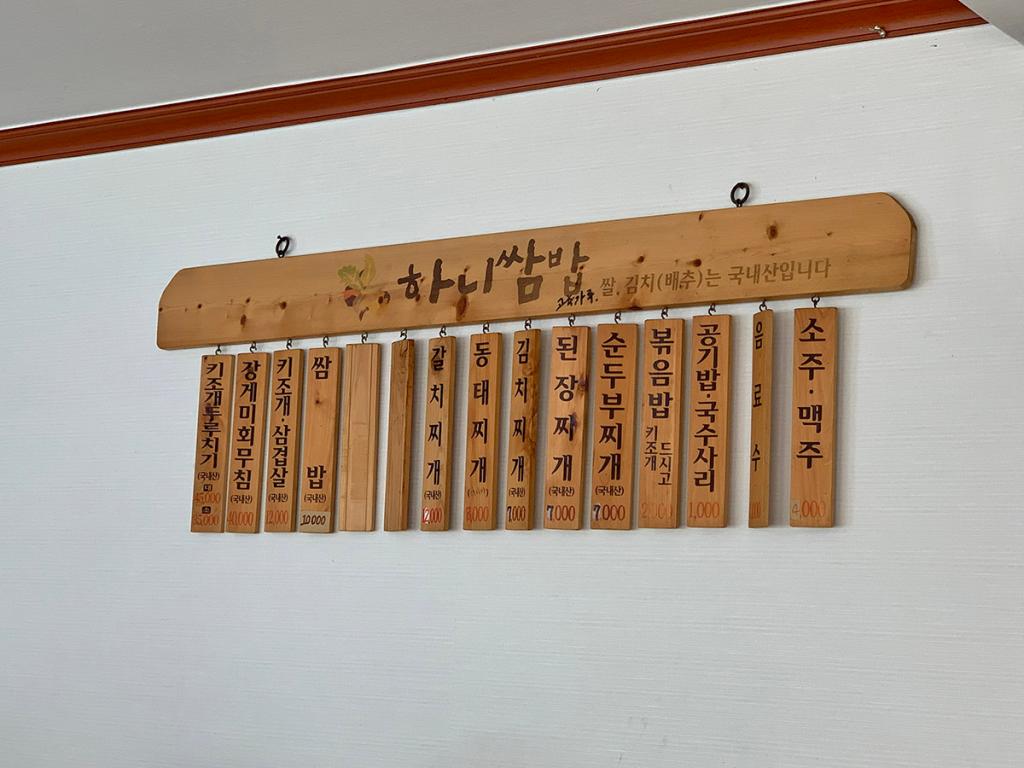 하니쌈밥
고추가루.
쌀, 김치(배추)는 국내산입니다
키조개두루치기
(국내산)
대
45,000
소
35,000
장게미회무침
(국내산)
40,000
키조개·삼겹살
(국내산)
12,000
쌈밥
10000
갈치찌개
(국내산)
12,000
동태찌개
김치찌개
(국내산)
7,000
된장찌개
(국내산)
7,000
순두부찌개
(국내산)
7,000
볶음밥
키조개
드시고
공기밥·국수사리
1,000
음료수
소주·맥주
4,000